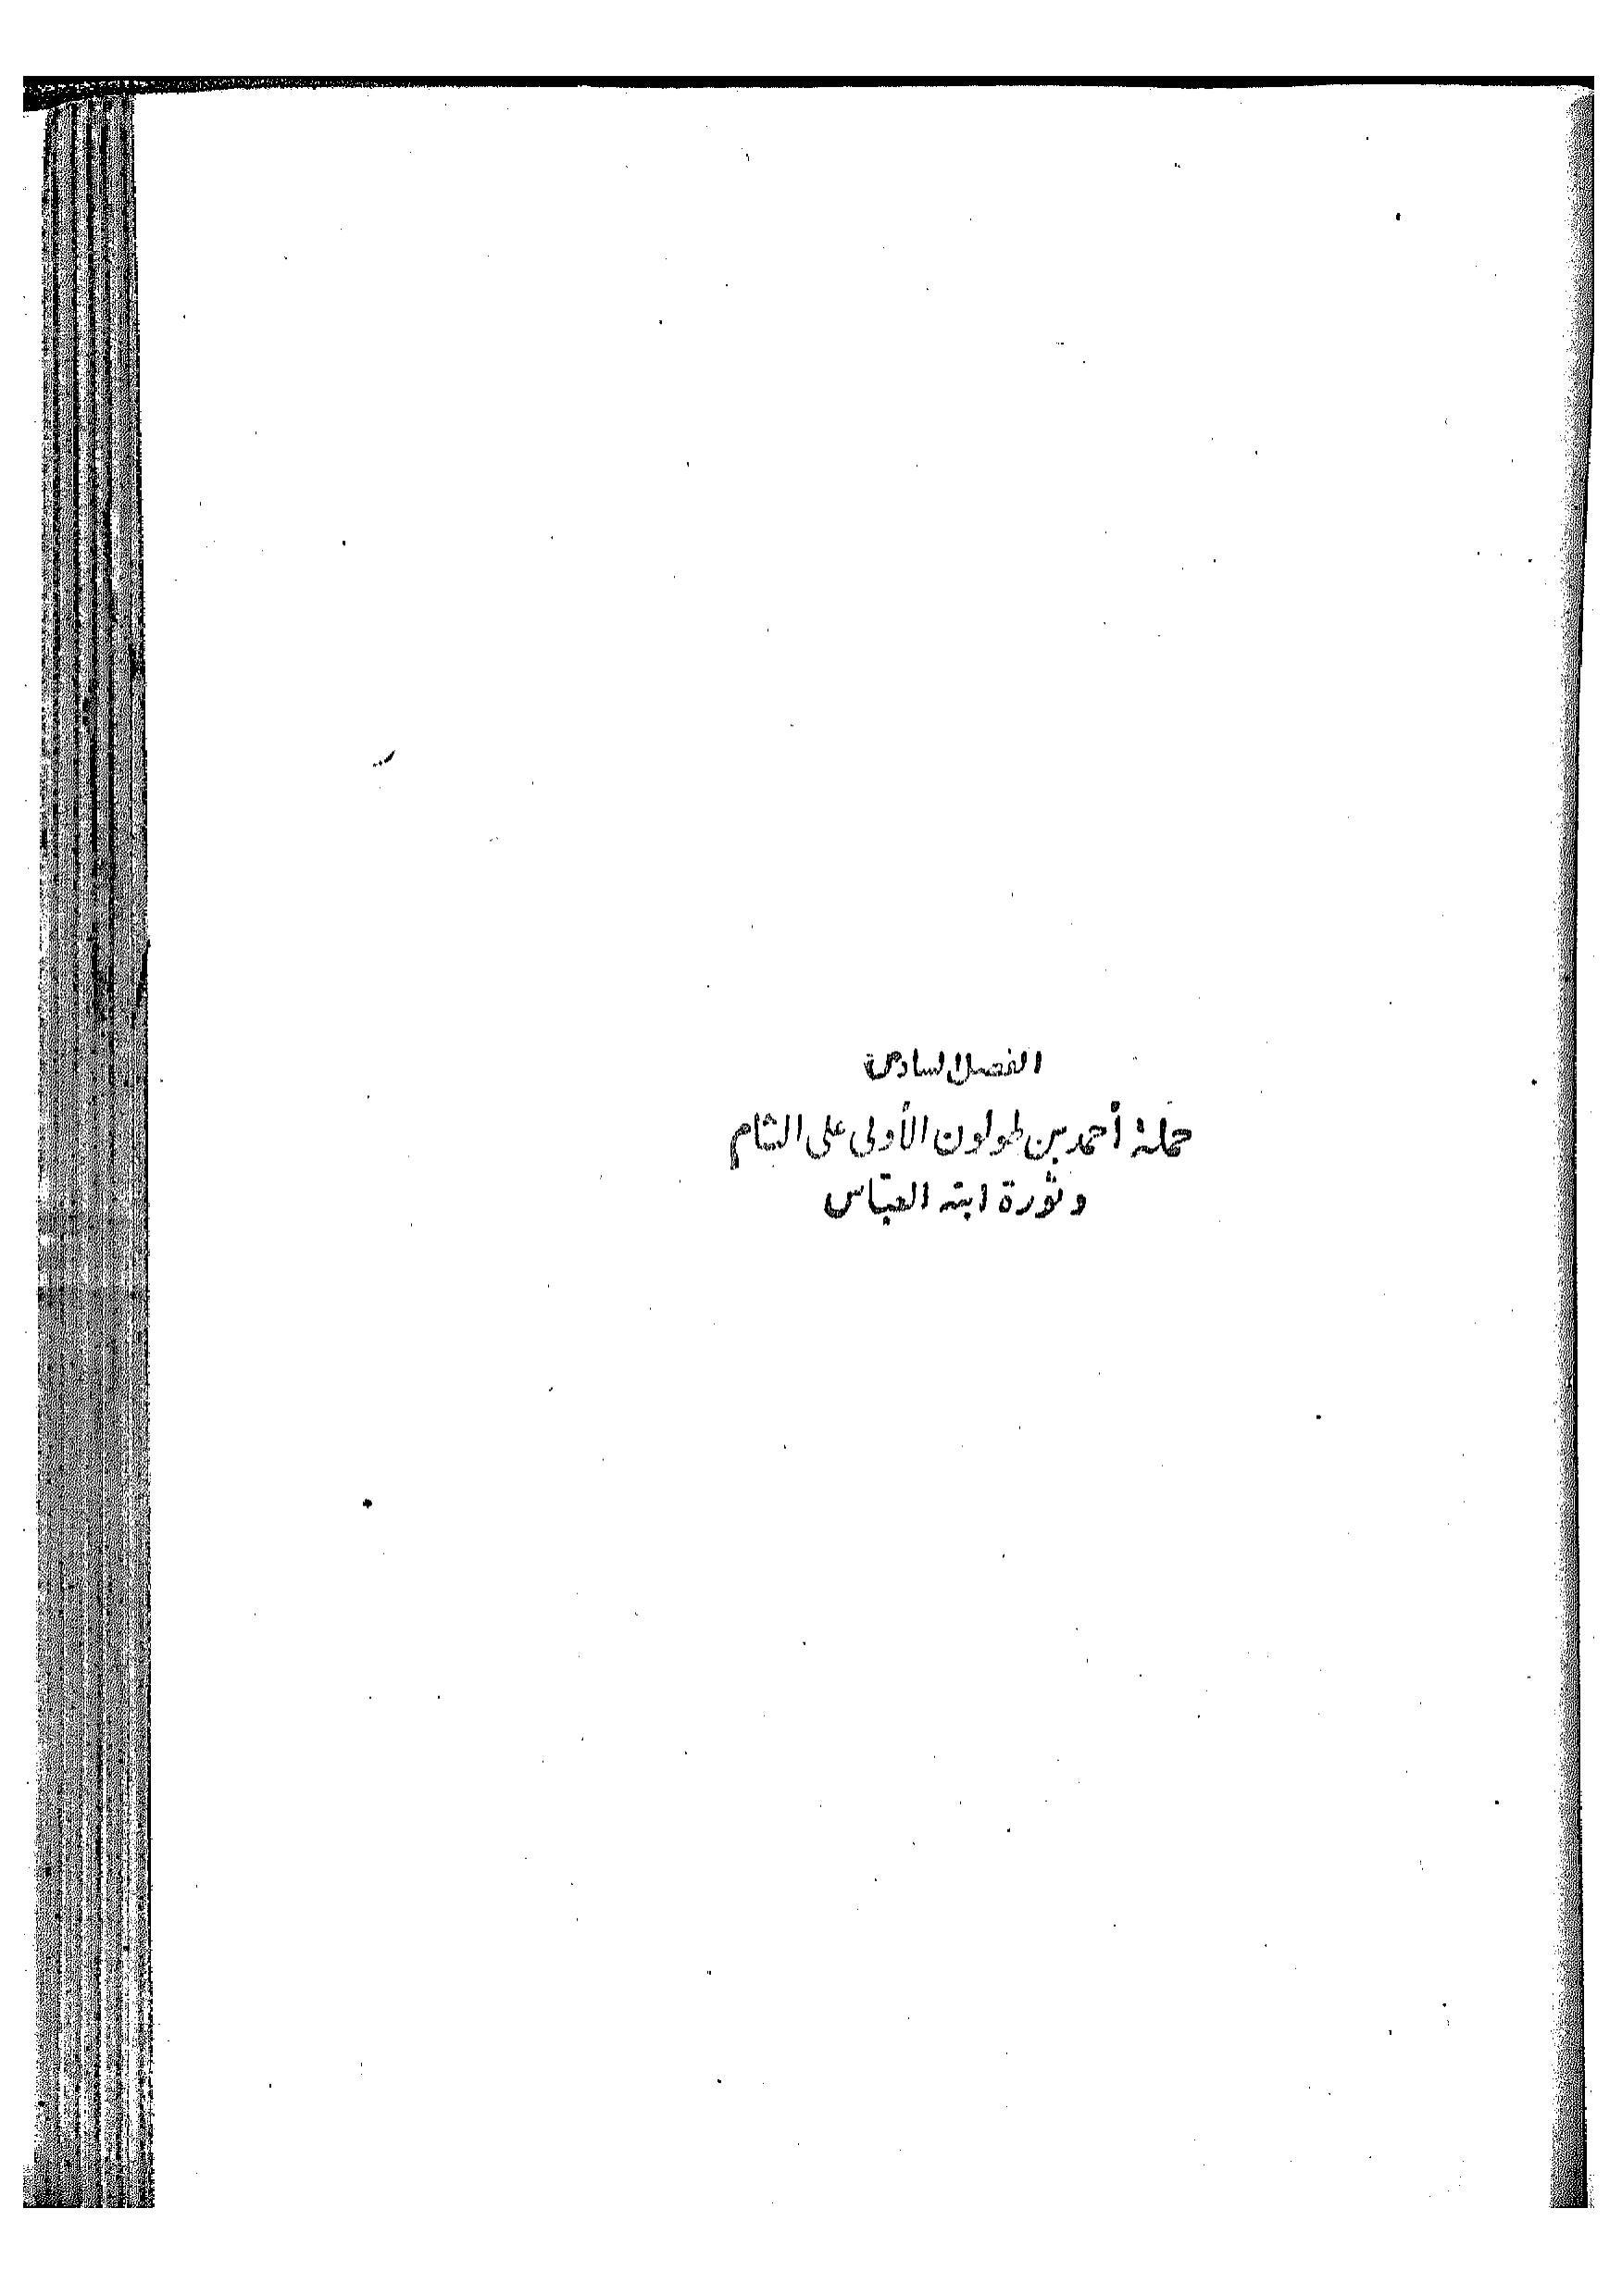 الفصل السادس
حملة أحمد بن طولون الأولى على الشام
وثورة ابنه العبّاس